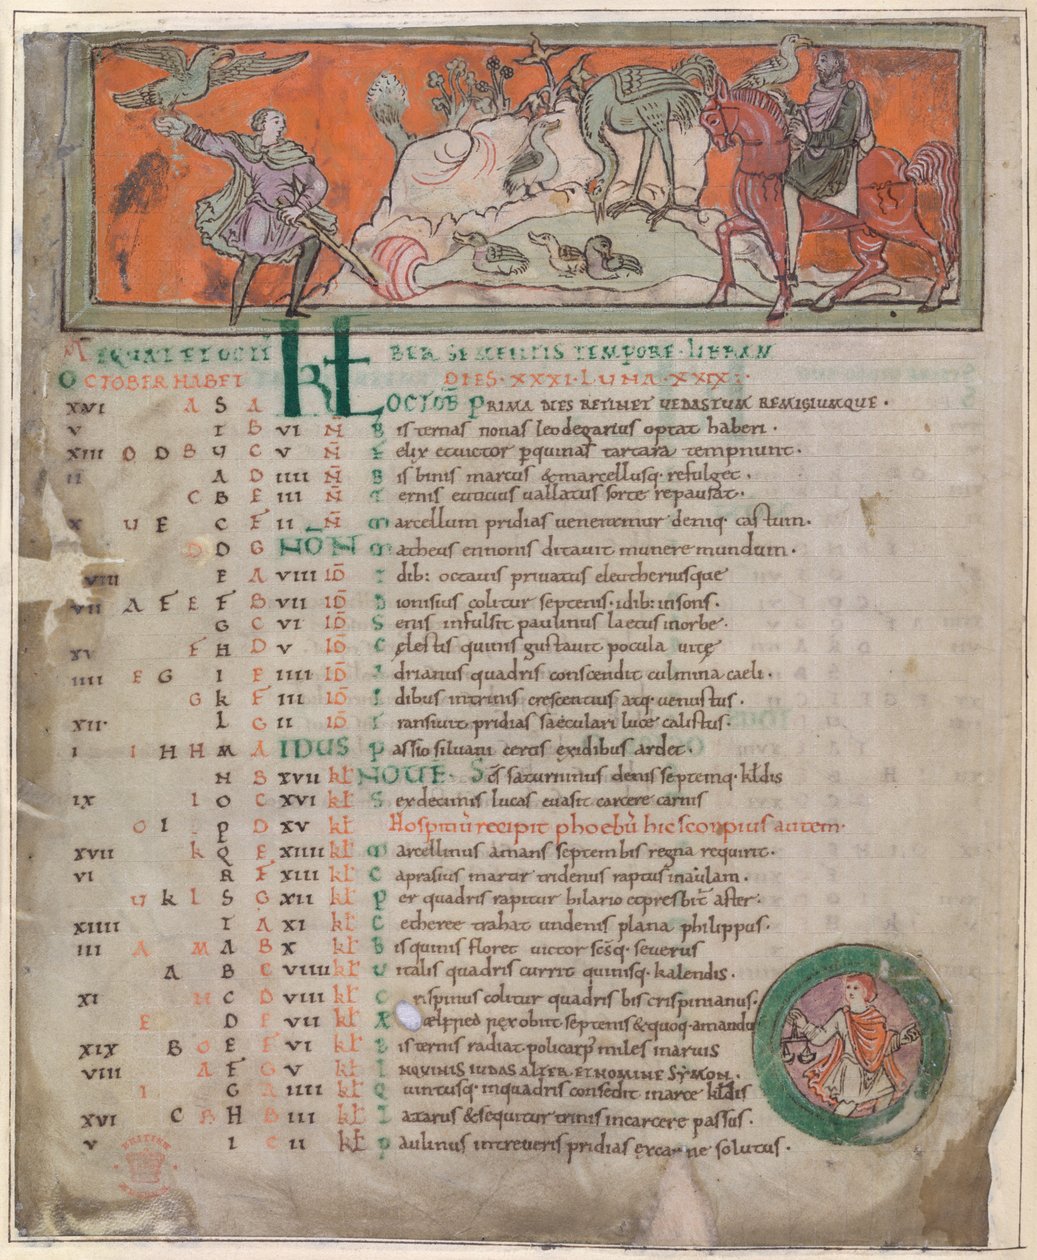 MEQUAT ET OCTI BER SEMENTIS TEMPORE · LIBRAM
OCTOBER HABET DIES · XXXI · LUNA · XXIX :
XVI A S A KL OCTOB̄ PRIMA DIES RETINET VEDASTUM REMIGIUMQUE .
V T B VI N̄ Bis ternas nonas leodegarius optat haberi .
XIII O D B C V N̄ Felix et victor tartara tempnunt .
II A D IIII N̄ Bis binis marcus & marcellusq; refulget .
C B E III N̄ Ternis euticius uallatus sorte repausat .
X U E C F II N̄ Marcellum pridias ueneremur deniq; castum .
D D G NŌN Matheus ennonis ditauit munere mundum .
VIII E A VIII ID̄ Idib: octauis priuatus eleutheriusque
VII A F E F B VII ID̄ Dionisius colitur septenis · idib: insons .
G C VI ID̄ Senis infulsit paulinus laetus in orbe .
XV F H D V ID̄ Cęlestis quinis gustauit pocula uitę
IIII F G I E IIII ID̄ Adrianus quadris conscendit culmina caeli .
G K F III ID̄ Idibus in trinis crescentius atq; uenustus .
XII L G II ID̄ Transiuit pridias saeculari luce calistus .
I I H H M A IDUS Passio siluani certis ex idibus ardet .
N B XVII kł NOVE · Scs saturninus denis septemq; kłdis
IX I O C XVI kł Sex decimis lucas euasit carcere carnis
O I P D XV kł Hospitiū recipit phoebū hic scorpius autem .
XVII K Q E XIIII kł Marcellinus amans septem bis regna requirit .
VI R F XIII kł Caprasius martir tridenus raptus in aulam .
U K L S G XII kł Per quadris rapitur hilario et presbit aster .
XIIII T A XI kł Cetheree trahat undenis plana philippus .
III A M A B X kł Bis quinis floret victor scsq; seuerus
A B C VIIII kł Vitalis quadris currit quinisq; kalendis .
XI N C D VIII kł Crispinus colitur quadris bis crispinianus .
E D E VII kł X ælfred rex obiit septenis & quoq; amandus
XIX B O E F VI kł Bis ternis radiat policarp' miles in aruis
VIII A F G V kł INQUINIS IUDAS ALTER ET NOMINE SYMON .
I G A IIII kł Quintusq; in quadris consedit in arce kłdis
XVI C B H B III kł Lazarus & sequitur trinis in carcere passus .
V I C II kł Paulinus in treueris pridias ex carne solutus .
BRITISH MUSEUM